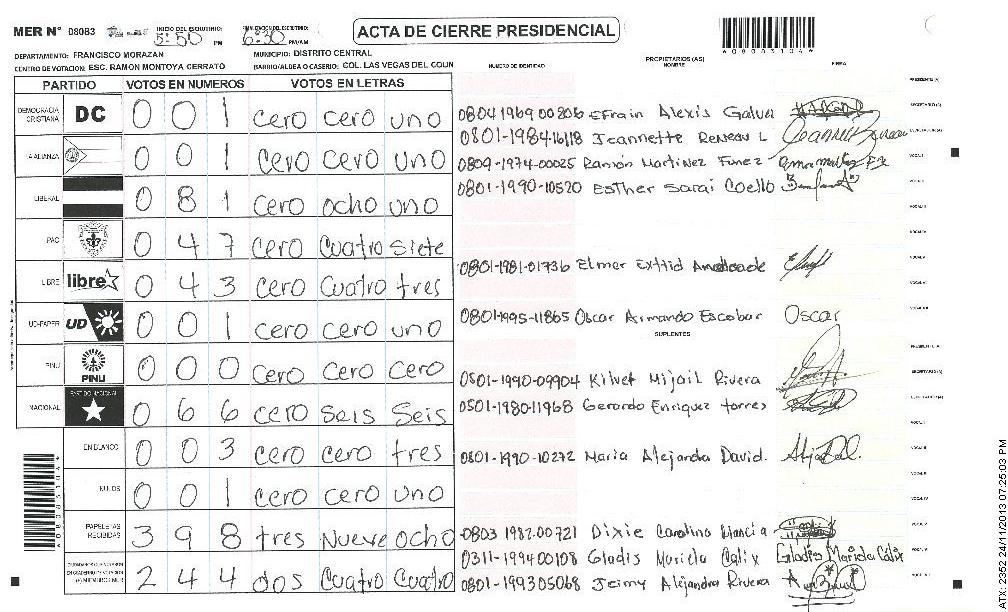 MER N° 08083 INICIO DEL ESCRUTINIO: 5:50 PM FINALIZACION DEL ESCRUTINIO: 6:30 PM/AM ACTA DE CIERRE PRESIDENCIAL
*08083104*
DEPARTAMENTO: FRANCISCO MORAZAN MUNICIPIO: DISTRITO CENTRAL
CENTRO DE VOTACION: ESC. RAMON MONTOYA CERRATO BARRIO/ALDEA O CASERIO: COL. LAS VEGAS DEL COUN
PARTIDO VOTOS EN NUMEROS VOTOS EN LETRAS
NUMERO DE IDENTIDAD PROPIETARIOS (AS) NOMBRE FIRMA
DEMOCRACIA CRISTIANA DC 0 0 1 cero cero uno
ALIANZA 0 0 1 cero cero uno
LIBERAL 0 8 1 cero ocho uno
PAC 0 4 7 cero cuatro siete
LIBRE libre 0 4 3 cero cuatro tres
UD-FAPER UD 0 0 1 cero cero uno
PINU PINU 0 0 0 cero cero cero
NACIONAL PARTIDO NACIONAL 0 6 6 cero seis seis
EN BLANCO 0 0 3 cero cero tres
NULOS 0 0 1 cero cero uno
PAPELETAS RECIBIDAS 3 9 8 tres Nueve ocho
2 4 4 dos cuatro cuatro
0804 1969 00806 Efrain Alexis Galva
0801-1984-16118 Jeannette Reneau L
0809-1974-00025 Ramón Martinez Funez
0801-1990-10520 Esther Sarai Coello
0801-1981-01736 Elmer Exttid Andrade
0801-1995-11865 Oscar Armando Escobar Oscar
SUPLENTES
0801-1990-09904 Kilvet Mijail Rivera
0501-1980-11968 Gerardo Enriquez torres
0801-1990-10272 Maria Alejandra David.
0803 1982-00721 Dixie Carolina
0311-1994 00108 Gladis Mariela Calix Gladis Mariela Calix
0801-199305068 Jeimy Alejandra Rivera
ATX 2352 24/11/2013 07:25:03 PM